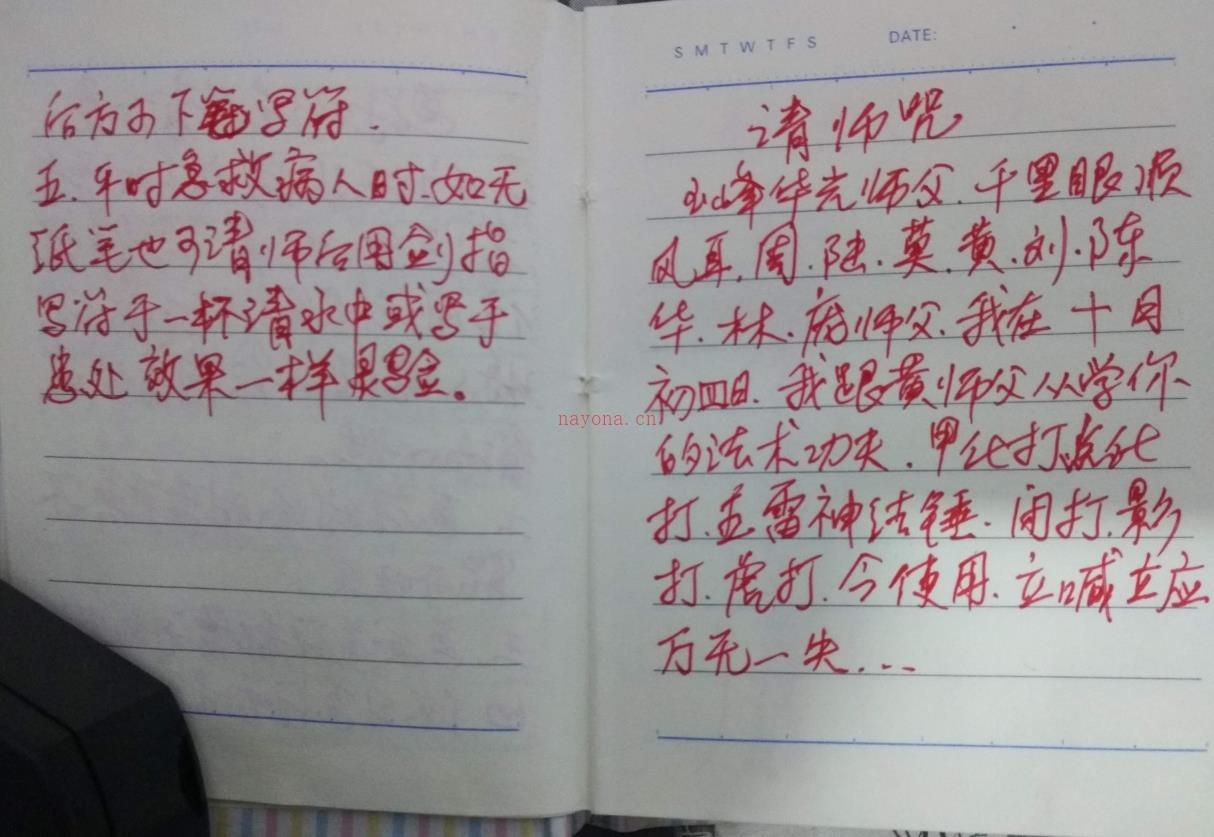 后方可下笔写符.
五.平时急救病人时.如无
纸笔也可请师后用剑指
写符于一杯清水中或写于
患处效果一样灵验。
S M T W T F S DATE:
请师咒
峰华光师父.千里眼顺
风耳.周.陆.莫.黄.刘.陈
华.林.府师父.我在十月
初四日.我跟黄师父从学你
的法术功夫.甲化打.点化
打.五雷神法锤.闭打.影
打.虎打.今使用.立喊立应
万无一失...
nayona.cn